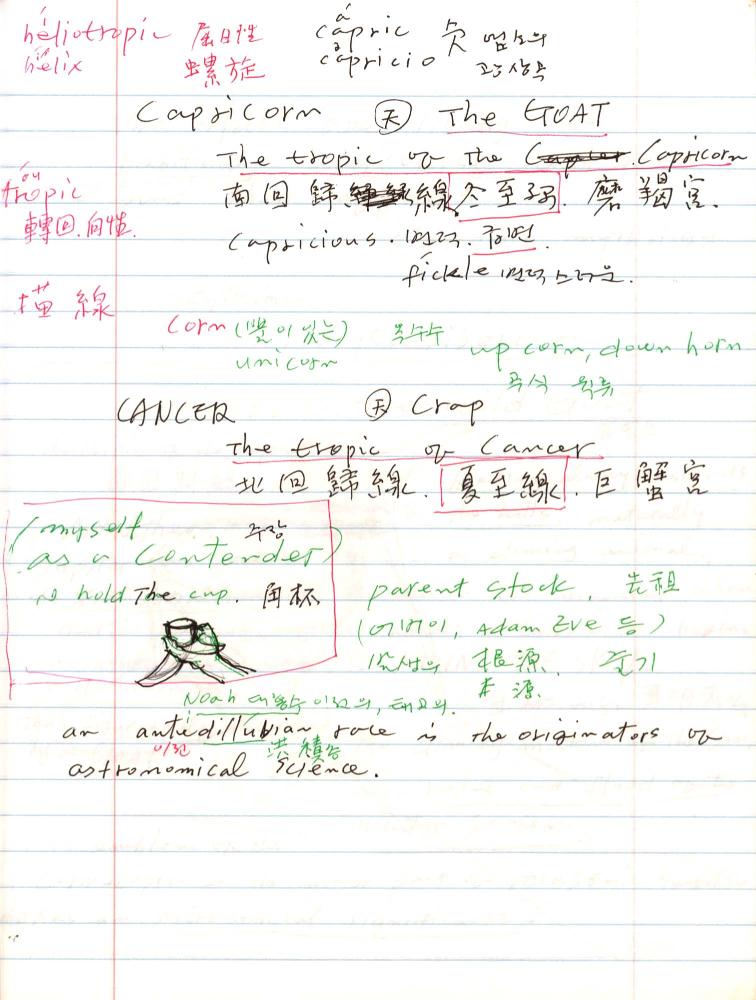 heliotropic 屈日性 capric 欠 염소의
helix 螺旋 capricio
Capricorn 天 The GOAT
The tropic of the Capricorn
tropic 南回歸線 冬至 磨羯宮.
轉回.向性.
capricious.변덕.
fickle 변덕스러운.
描線
corn (뿔이 있는) 옥수수 up corn, down horn
unicorn 곡식
CANCER 天 Crap
The tropic of Cancer
北回歸線. 夏至線. 巨蟹宮
(myself 주장
as a contender)
hold The cup. 角杯
parent stock. 先祖
(어버이, Adam Eve 등)
根源. 줄기
本源.
Noah 대홍수 이전의, 태고의.
an antidillubian race is the originators of
이전 洪積
astronomical science.